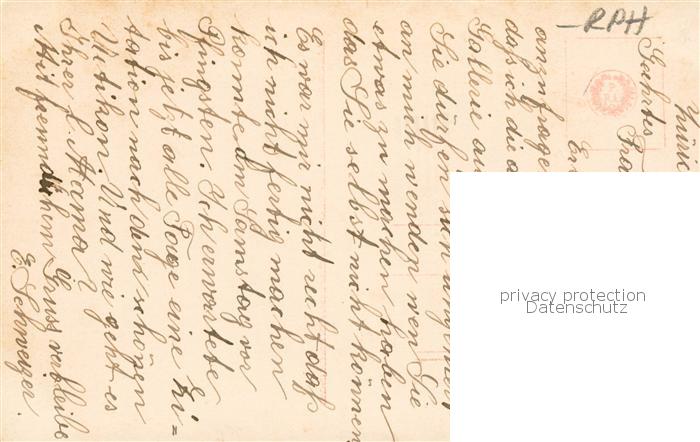 -RPH
Züric
Geehrtes Fra
En
anzufragen
daß ich die a
Gallerie au
Sie dürfen sich ungenier
an mich wenden wen Sie
etwas zu machen haben
das Sie selbst nicht können
Es war mir nicht recht daß
ich nicht fertig machen
konnte am Samstag vor
Pfingsten. Ich erwartete
bis jetzt alle Tage eine Zi=
tation nach dem schönen
Uetikon. Und wie geht es
Ihrer l. Mama?
Mit freundlichem Gruss verbleibe
E. Schweizer.
privacy protection
Datenschutz